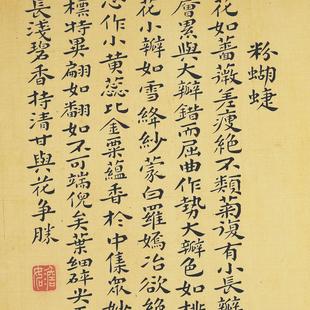 粉蝴蝶
花如薔薇差瘦絕不類菊復有小長瓣
層累與大瓣錯而屈曲作勢大瓣色如桃
花小瓣如雪絳紗蒙白羅嫣冶欲絕
心作小黃蕊比金粟蘊香於中集眾妙
標特異翩如翻如不可端倪矣葉細碎尖
長淺碧香持清甘與花爭勝